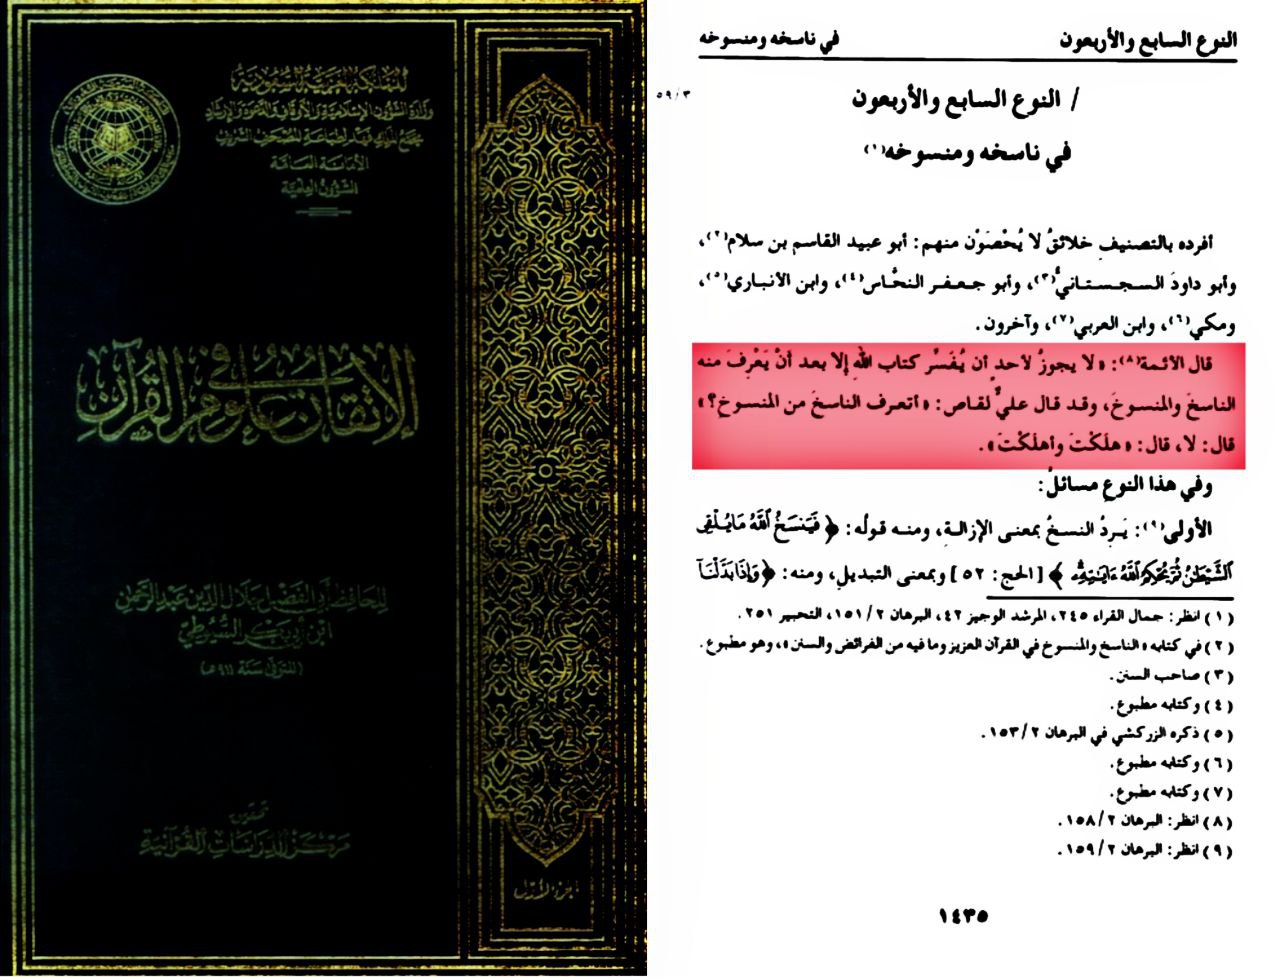 المملكة العربية السعودية
وزارة الشؤون الإسلامية والأوقاف والدعوة والإرشاد
مجمع الملك فهد لطباعة المصحف الشريف
الأمانة العامة
الشؤون العلمية
الإتقان في علوم القرآن
للحافظ أبي الفضل جلال الدين عبد الرحمن
ابن أبي بكر السيوطي
(المتوفى سنة ٩١١ هـ)
تحقيق
مركز الدراسات القرآنية
الجزء الأول
النوع السابع والأربعون في ناسخه ومنسوخه
٥٩/٣
/ النوع السابع والأربعون
في ناسخه ومنسوخه(١)
أفرده بالتصنيفِ خلائقُ لا يُحْصَوْن منهم: أبو عبيد القاسم بن سلام(٢)،
وأبو داودَ السجستانيُّ(٣)، وأبو جعفر النحَّاس(٤)، وابن الأنباري(٥)،
ومكي(٦)، وابن العربي(٧)، وآخرون.
قال الأئمة(٨): «لا يجوزُ لأحدٍ أن يُفَسِّر كتاب اللهِ إلا بعد أنْ يَعْرِفَ منه
الناسخَ والمنسوخَ، وقد قال عليٌّ لقاص: «أتعرف الناسخَ من المنسوخِ؟»
قال: لا، قال: «هلَكْتَ وأهلَكْتَ».
وفي هذا النوعِ مسائلُ:
الأولى(٩): يَرِدُ النسخُ بمعنى الإزالةِ، ومنه قولُه: ﴿فَيَنسَخُ ٱللَّهُ مَا يُلۡقِي
ٱلشَّيۡطَٰنُ ثُمَّ يُحۡكِمُ ٱللَّهُ ءَايَٰتِهِۦ﴾ [الحج: ٥٢] وبمعنى التبديلِ، ومنه: ﴿وَإِذَا بَدَّلۡنَآ
(١) انظر: جمال القراء ٢٤٥، المرشد الوجيز ٤٢، البرهان ١٥١/٢، التحبير ٢٥١.
(٢) في كتابه «الناسخ والمنسوخ في القرآن العزيز وما فيه من الفرائض والسنن»، وهو مطبوع.
(٣) صاحب السنن.
(٤) وكتابه مطبوع.
(٥) ذكره الزركشي في البرهان ١٥٣/٢.
(٦) وكتابه مطبوع.
(٧) وكتابه مطبوع.
(٨) انظر: البرهان ١٥٨/٢.
(٩) انظر: البرهان ١٥٩/٢.
١٤٣٥